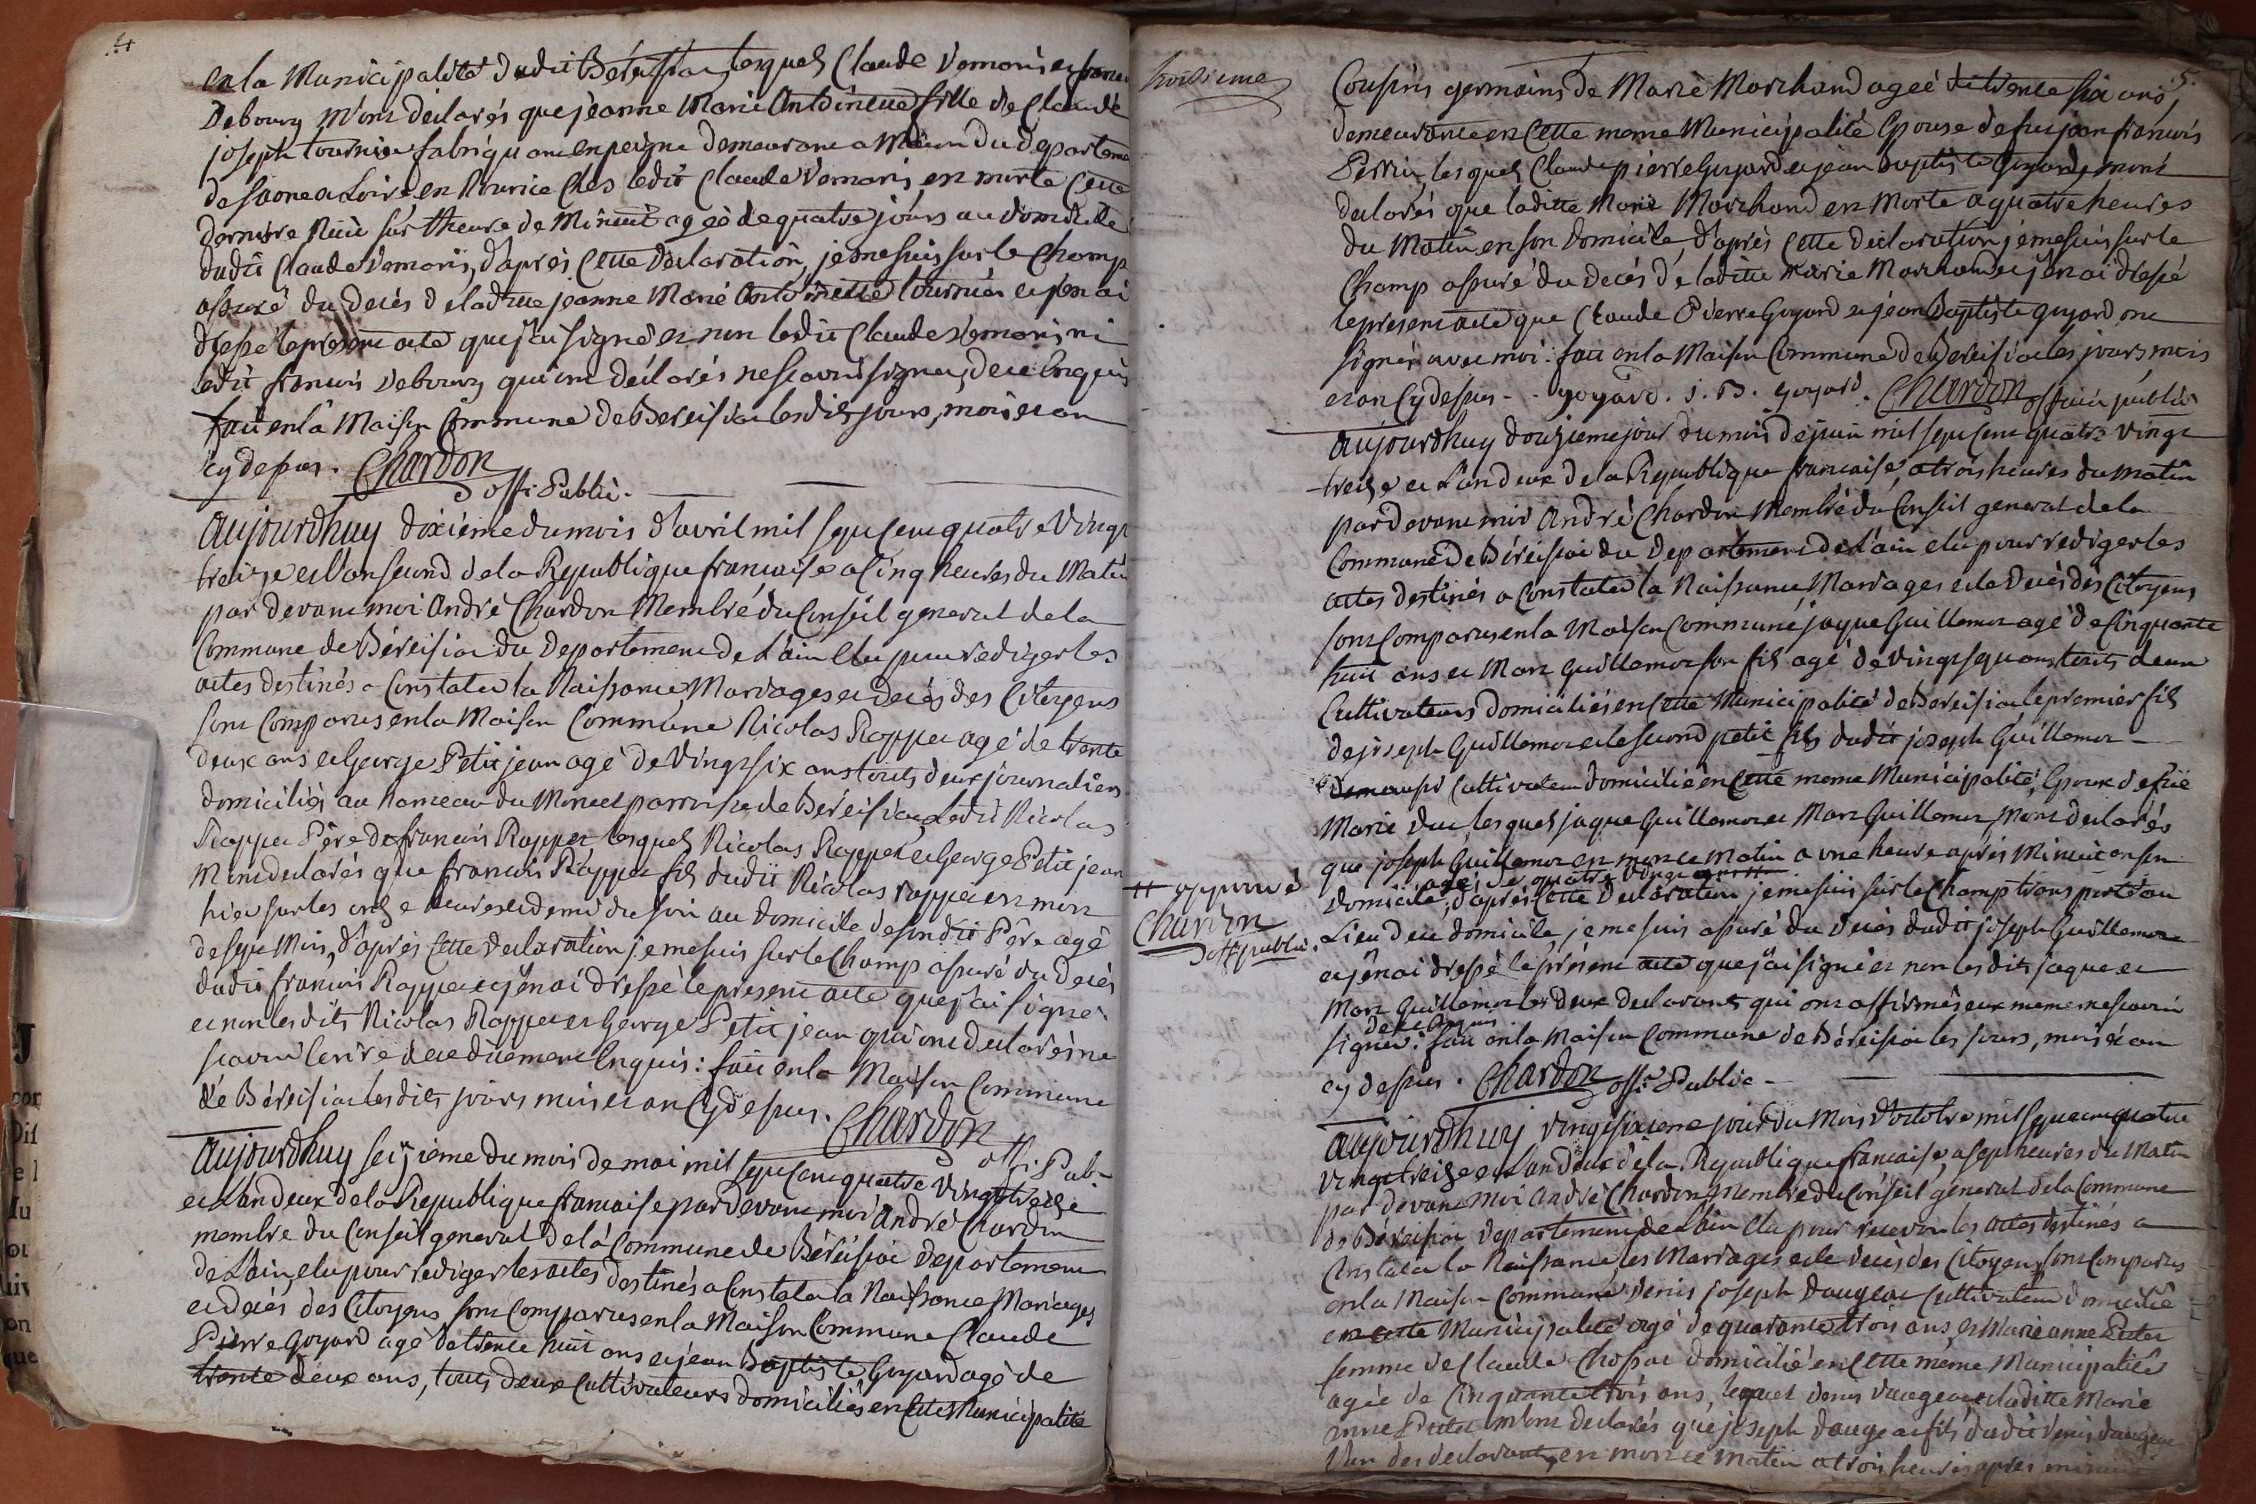 4
en la Municipalité dudit Béréisiat, lesquels Claude Vemoris et francois
Debourg m'ont déclarés que jeanne Marie Antoinette fille de Claude
joseph tournier fabriquant en peigne demeurant a Mâcon du département
de saone et Loire en Nourice chés ledit Claude Vemoris en morte cette
dernière Nuit sur l'heure de Minuit agéé de quatre jours au domicile
dudit Claude Vemoris, d'après Cette Déclaration, je me suis sur le Champ
assuré du decés de ladite jeanne Marie Antoinette tournier et j'en ai
dressé le present acte que j'ai signé et non ledit Claude Vemoris ni
ledit francois Debourg qui ont déclarés ne scavoir signer, de ce Enquis
fait en la Maison Commune de Bereisiat lesdits jours, mois et an
cy dessus. Chardon
off. Public.
Aujourdhuy dixième du mois d'avril mil sept cent quatre Vingt
treize et L'an second de la Republique francaise a Cinq heures du Matin
par devant moi André Chardon Membre du Conseil general de la
Commune de Béreisiat du Departement de L'ain Elu pour rediger les
actes destinés a Constater la Naissance Mariages et decés des Citoyens
sont Comparus en la Maison Commune Nicolas Rappet agé de trente
deux ans et George Petitjean agé de Vingt six ans touts deux journaliers
domiciliés au hameau du Moncet parroisse de Béréisiat, Ledit Nicolas
Rappet Père de francois Rappet, lesquels Nicolas Rappet et George Petit jean
M'ont declarés que francois Rappet fils dudit Nicolas rappet en mort
hier sur les onze heures et demi du soir au domicile de sondit Père agé
de sept Mois, d'après Cette declaration je me suis sur le Champ assuré du decés
dudit francois Rappet et j'en ai dressé le present acte que j'ai signé
et non lesdits Nicolas Rappet et George Petit jean qui ont declarés ne
scavoir Ecrire de ce duement Enquis : fait en la Maison Commune
de Béreisiat lesdits jours mois et an Cy dessus. Chardon
off. Pub.
Aujourdhuy seizième du mois de mai mil sept cent quatre Vingt treize
et L'an deux de la Republique francaise par devant moi André Chardon
membre du Conseil general de la Commune de Béréisiat departement
de L'ain, elu pour rediger les actes destinés a Constater la Naissance Mariages
et decés des Citoyens, sont Comparus en la Maison Commune Claude
Pierre Goyard agé de trente huit ans et jean Baptiste Goyard agé de
trente deux ans, touts deux Cultivateurs domiciliés en Cette Municipalité
5.
troisieme
Cousins germains de Marie Marchand ageé de trente six ans,
demeurante en Cette meme Municipalité Epouse de feu jean francois
Perrin, les quels Claude pierre Goyard et jean Baptiste Goyard, m'ont
declarés que laditte Marie Marchand en Morte a quatre heures
du Matin en son domicile, d'après Cette declaration je me suis sur le
Champ assuré du decés de laditte Marie Marchand et j'en ai dressé
le present acte que Claude Pierre Goyard et jean Baptiste goyard ont
signés avec moi : fait en la Maison Commune de Bereisiat les jours mois
et an Cy dessus - . goyard . j. B. goyard . Chardon officié public
Aujourdhuy douzieme jour du mois de juin mil sept cent quatre Vingt
treize et L'an deux de la Republique francaise, a trois heures du matin
par devant moi André Chardon Membre du Conseil general de la
Commune de Béréisiat du Departement de L'ain elu pour rediger les
actes destinés a Constater la Naissance, Mariages et le Decés des Citoyens
sont Comparus en la Maison Commune, jaque Guillemot agé de Cinquante
huit ans et Marc Guillemot son fils agé de vingt sept ans touts deux
Cultivateurs domiciliés en Cette Municipalité de Bereisiat le premier fils
de joseph Guillemot et le second petit fils dudit joseph Guillemot
aussi Cultivateur domicilié en Cette meme Municipalité, Epoux de feüe
Marie Duc lesquels jaque Guillemot et Marc Guillemot, M'ont declarés
que joseph Guillemot en mort ce matin a une heure après Minuit en son
agé de quatre vingt
domicile, d'après Cette declaration je me suis sur le Champ transporté au
Lieu deu domicile, je me suis assuré du decés dudit joseph Guillemot
et j'en ai dressé le présent acte que j'ai signé et non lesdits jaque et
Marc Guillemot les deux declarants qui ont affirmés eux meme ne scavoir
de ce Enquis
signer : fait en la Maison Commune de Béréisiat les jours, mois et an
cy dessus. Chardon off. Public -
approuvé
Chardon
off. public.
Aujourdhuy vingt sixieme jour du Mois d'octobre mil sept cent quatre
Vingt treize et L'an deux de la Republique francaise, a sept heures du Matin
par devant moi André Chardon Membre du Conseil général de la Commune
de Béreisiat departement de L'ain Elu pour recevoir les actes destinés a
Constater la Naissance les Mariages et le decés des Citoyens sont Comparus
en la Maison Commune denis joseph Daugeat Cultivateur domicilié
en cette Municipalité agé de quarante trois ans et Marie anne Putet
femme de Claude Chossat domicilié en Cette même Municipalité
agée de Cinquante trois ans, lequel denis daugeat et laditte Marie
anne Putet m'ont declarés que joseph daugeat fils dudit denis daugeat
L'un des declarants, en mort ce matin a trois heures après minuit